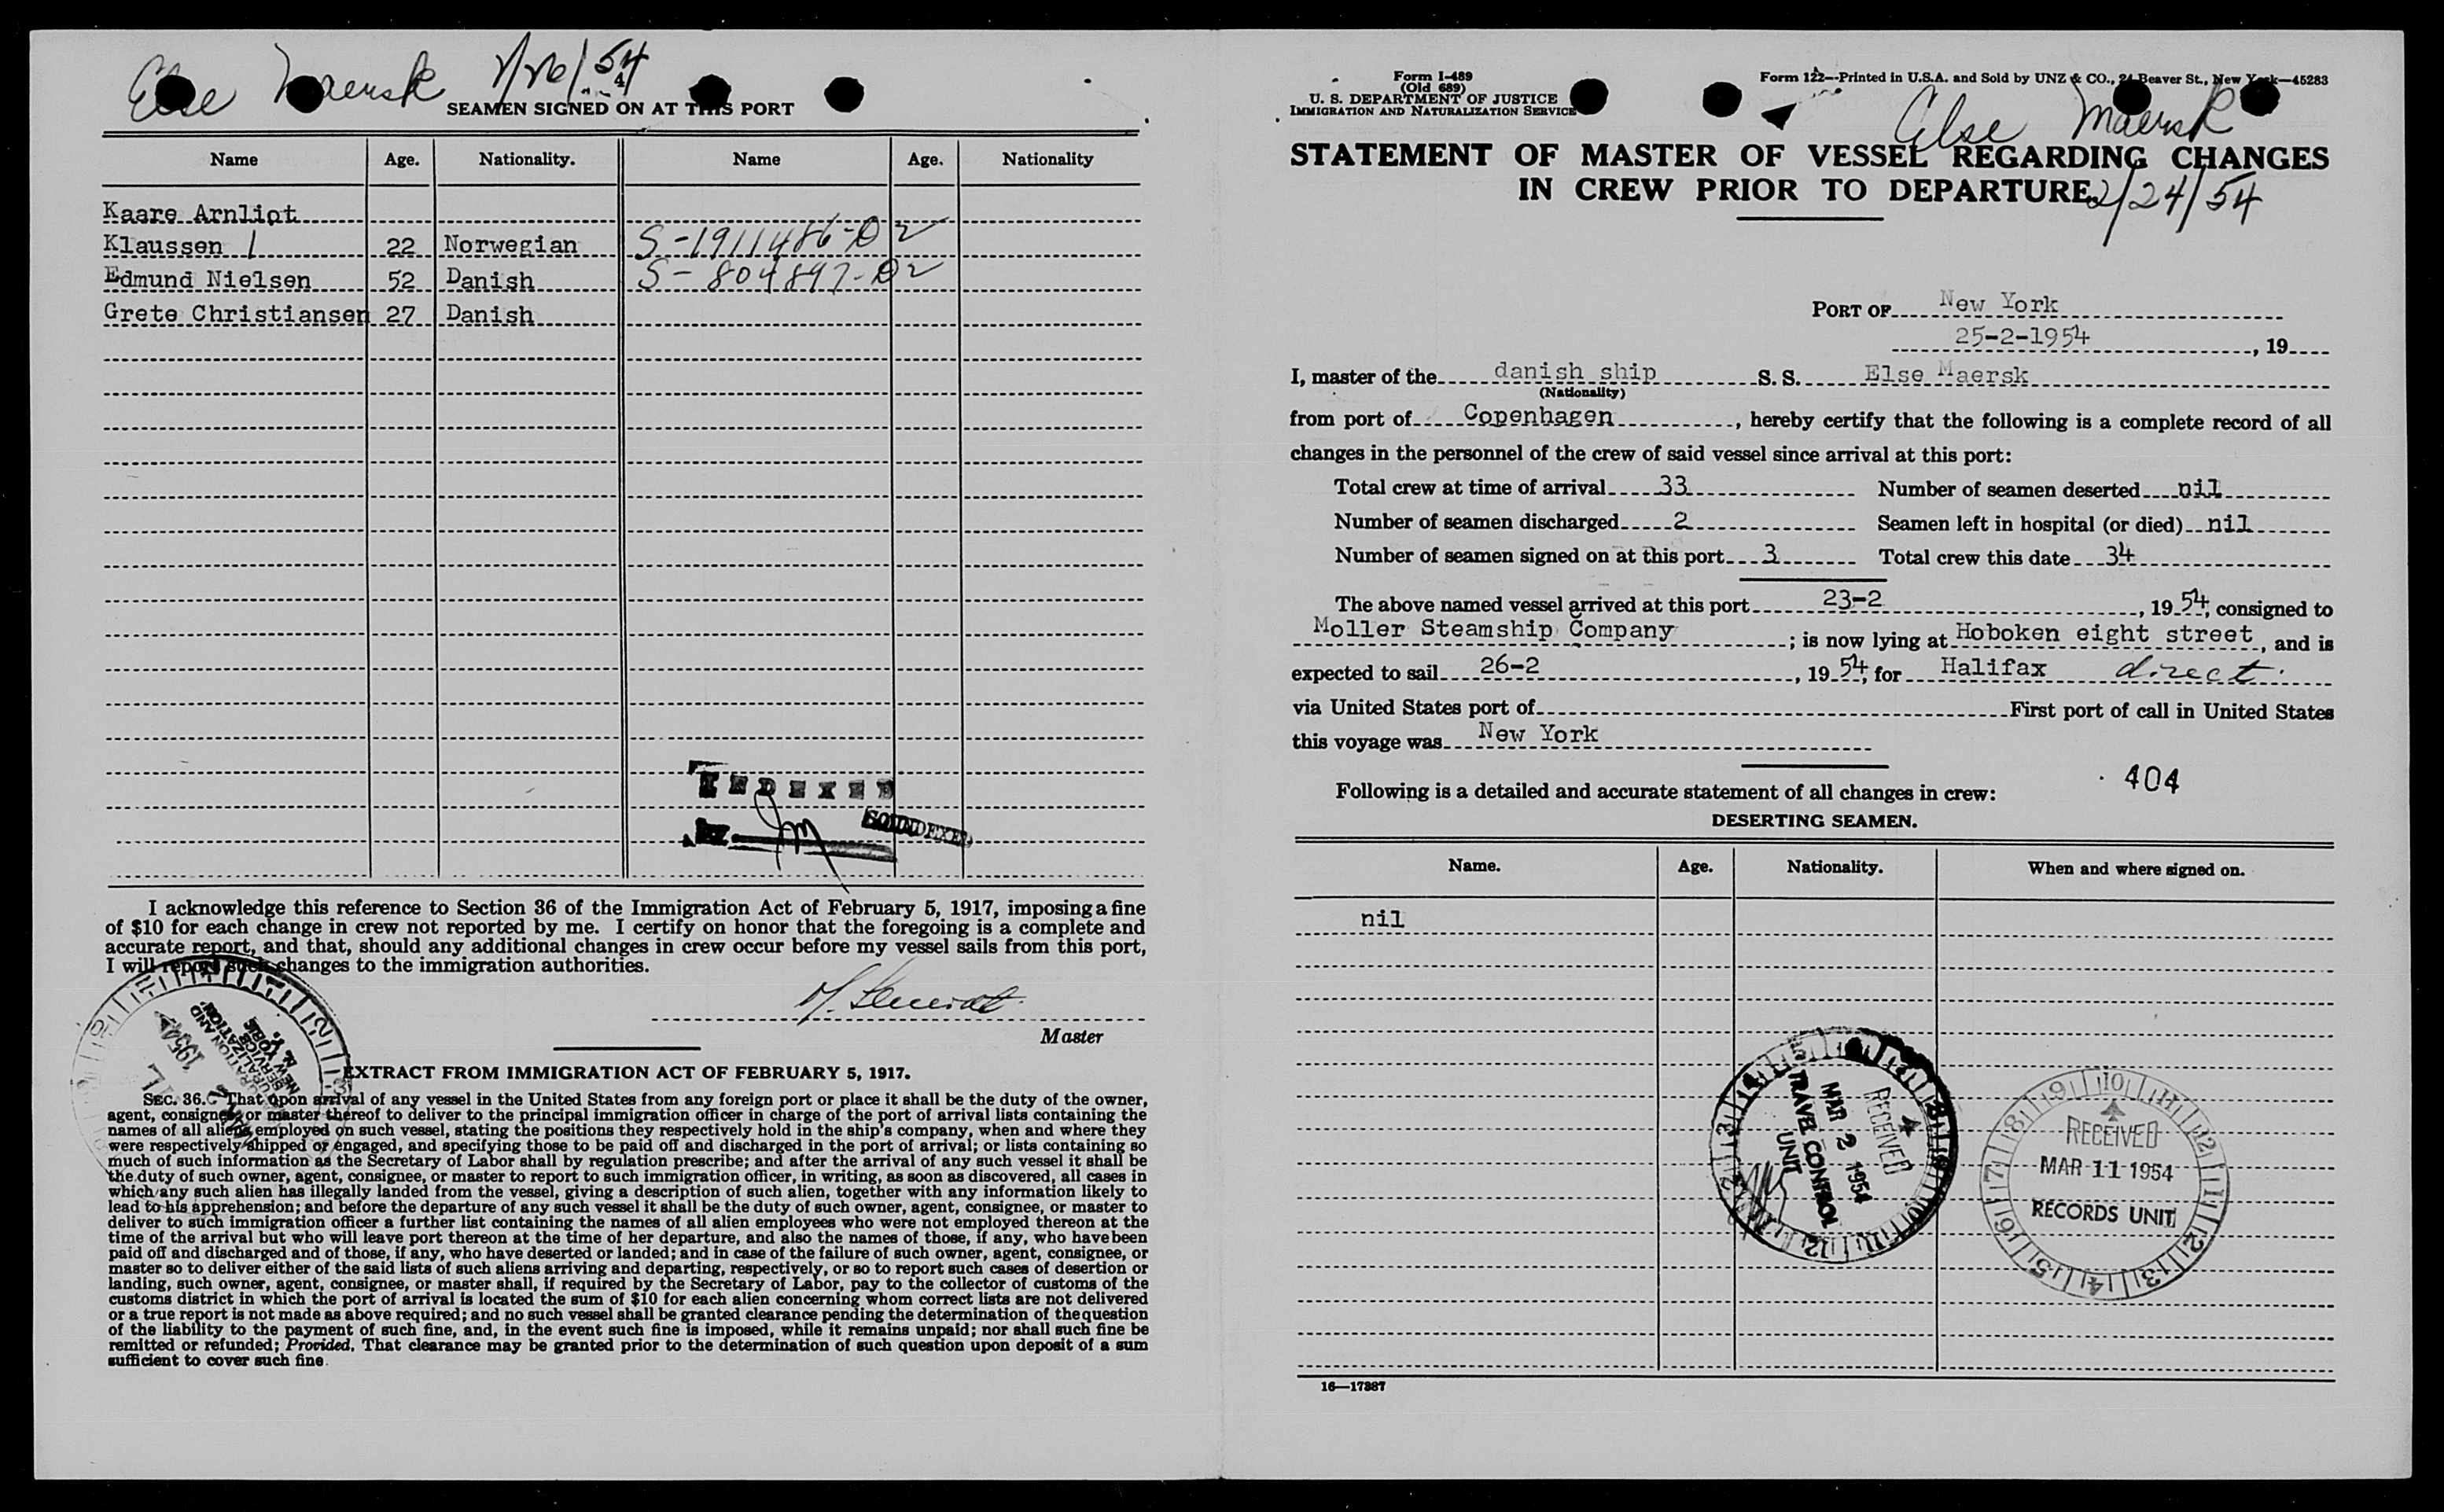 Else Maersk 2/26/54
SEAMEN SIGNED ON AT THIS PORT
Name Age. Nationality. Name Age. Nationality
Kaare Arnliot
Klaussen 1 22 Norwegian S-1911486-D2
Edmund Nielsen 52 Danish S-804897-D2
Grete Christiansen 27 Danish
INDEXED
SOUNDEXED
I acknowledge this reference to Section 36 of the Immigration Act of February 5, 1917, imposing a fine
of $10 for each change in crew not reported by me. I certify on honor that the foregoing is a complete and
accurate report, and that, should any additional changes in crew occur before my vessel sails from this port,
I will report such changes to the immigration authorities.
Master
EXTRACT FROM IMMIGRATION ACT OF FEBRUARY 5, 1917.
SEC. 36. That upon arrival of any vessel in the United States from any foreign port or place it shall be the duty of the owner,
agent, consignee, or master thereof to deliver to the principal immigration officer in charge of the port of arrival lists containing the
names of all aliens employed on such vessel, stating the positions they respectively hold in the ship's company, when and where they
were respectively shipped or engaged, and specifying those to be paid off and discharged in the port of arrival; or lists containing so
much of such information as the Secretary of Labor shall by regulation prescribe; and after the arrival of any such vessel it shall be
the duty of such owner, agent, consignee, or master to report to such immigration officer, in writing, as soon as discovered, all cases in
which any such alien has illegally landed from the vessel, giving a description of such alien, together with any information likely to
lead to his apprehension; and before the departure of any such vessel it shall be the duty of such owner, agent, consignee, or master to
deliver to such immigration officer a further list containing the names of all alien employees who were not employed thereon at the
time of the arrival but who will leave port thereon at the time of her departure, and also the names of those, if any, who have been
paid off and discharged and of those, if any, who have deserted or landed; and in case of the failure of such owner, agent, consignee, or
master so to deliver either of the said lists of such aliens arriving and departing, respectively, or so to report such cases of desertion or
landing, such owner, agent, consignee, or master shall, if required by the Secretary of Labor, pay to the collector of customs of the
customs district in which the port of arrival is located the sum of $10 for each alien concerning whom correct lists are not delivered
or a true report is not made as above required; and no such vessel shall be granted clearance pending the determination of the question
of the liability to the payment of such fine, and, in the event such fine is imposed, while it remains unpaid; nor shall such fine be
remitted or refunded; Provided, That clearance may be granted prior to the determination of such question upon deposit of a sum
sufficient to cover such fine.
Form I-489
(Old 689)
U. S. DEPARTMENT OF JUSTICE
IMMIGRATION AND NATURALIZATION SERVICE
Form 122--Printed in U.S.A. and Sold by UNZ & CO., 24 Beaver St., New York—45283
Else Maersk
STATEMENT OF MASTER OF VESSEL REGARDING CHANGES
IN CREW PRIOR TO DEPARTURE.
2/24/54
PORT OF New York
25-2-1954, 19
I, master of the danish ship S. S. Else Maersk
(Nationality)
from port of Copenhagen, hereby certify that the following is a complete record of all
changes in the personnel of the crew of said vessel since arrival at this port:
Total crew at time of arrival 33 Number of seamen deserted nil
Number of seamen discharged 2 Seamen left in hospital (or died) nil
Number of seamen signed on at this port 3 Total crew this date 34
The above named vessel arrived at this port 23-2, 1954, consigned to
Moller Steamship Company; is now lying at Hoboken eight street, and is
expected to sail 26-2, 1954, for Halifax direct.
via United States port of First port of call in United States
this voyage was New York
404
Following is a detailed and accurate statement of all changes in crew:
DESERTING SEAMEN.
Name. Age. Nationality. When and where signed on.
nil
RECEIVED
MAR 2 1954
TRAVEL CONTROL
UNIT
RECEIVED
MAR 11 1954
RECORDS UNIT
16—17387